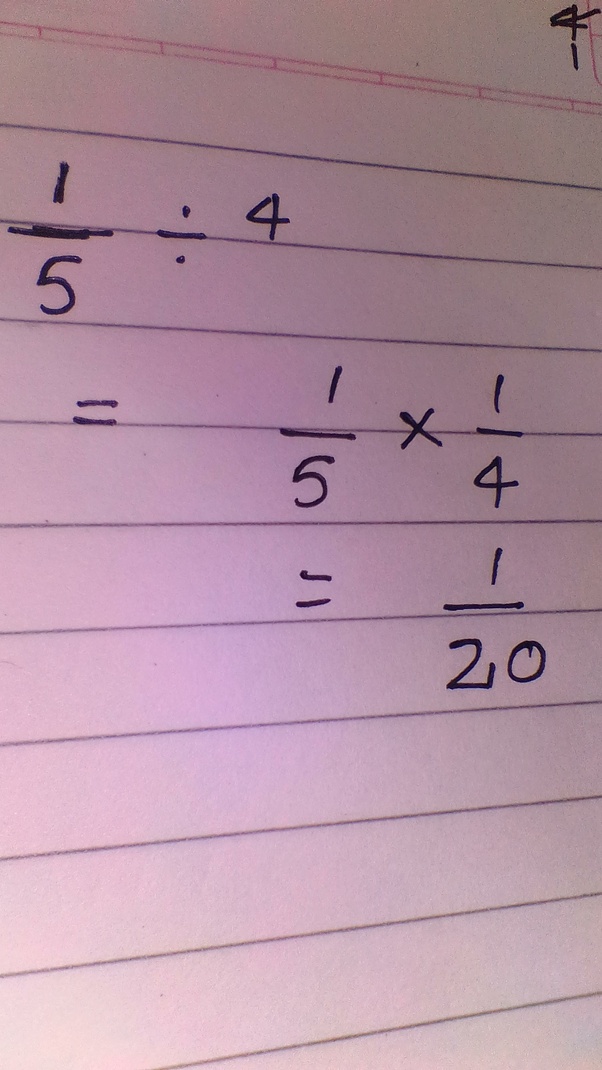 4/1
1/5 ÷ 4
= 1/5 × 1/4
= 1/20